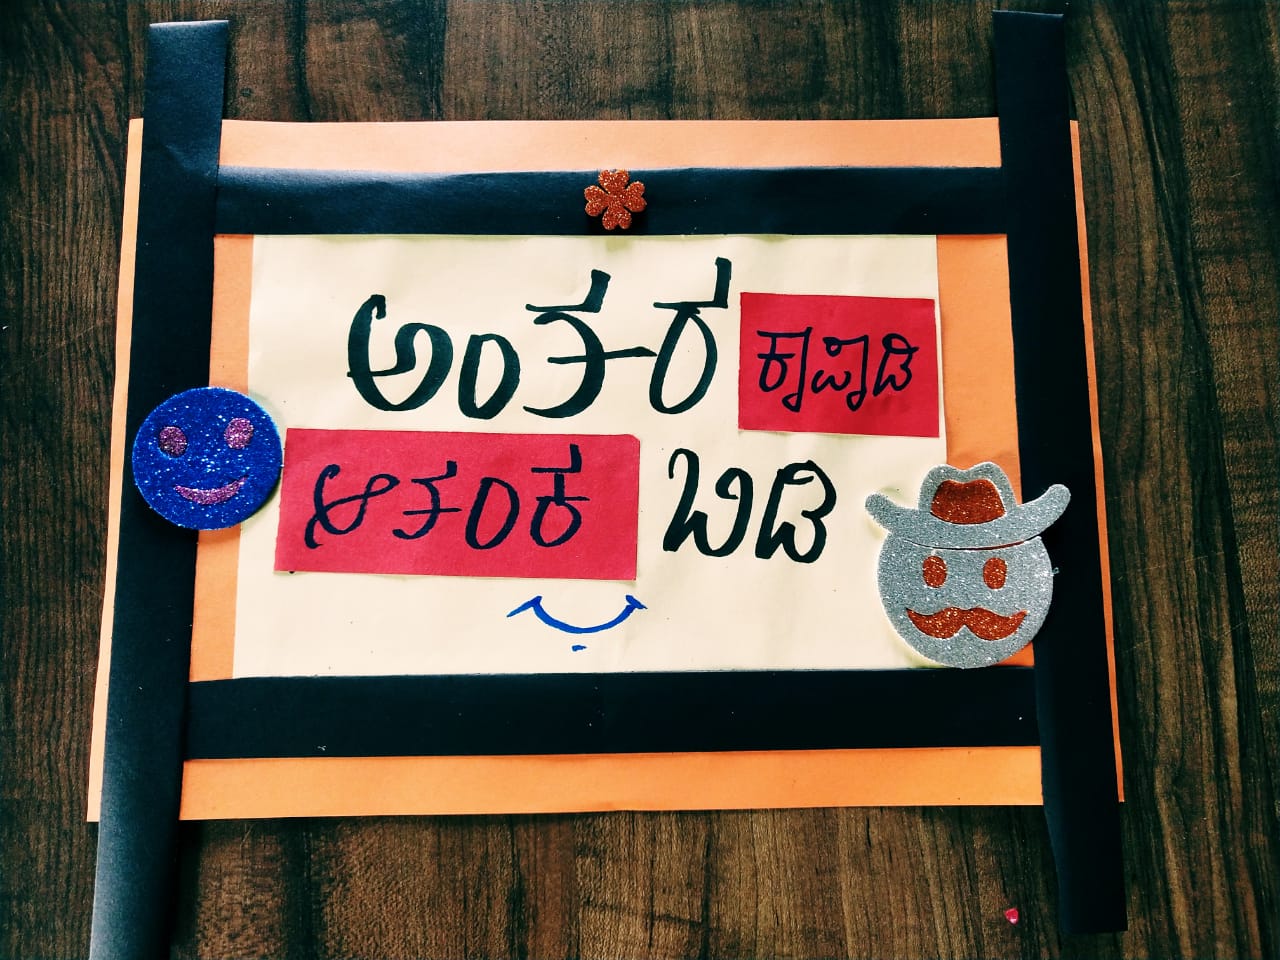 ಅಂತರ ಕಾಪಾಡಿ
ಆತಂಕ ಬಿಡಿ